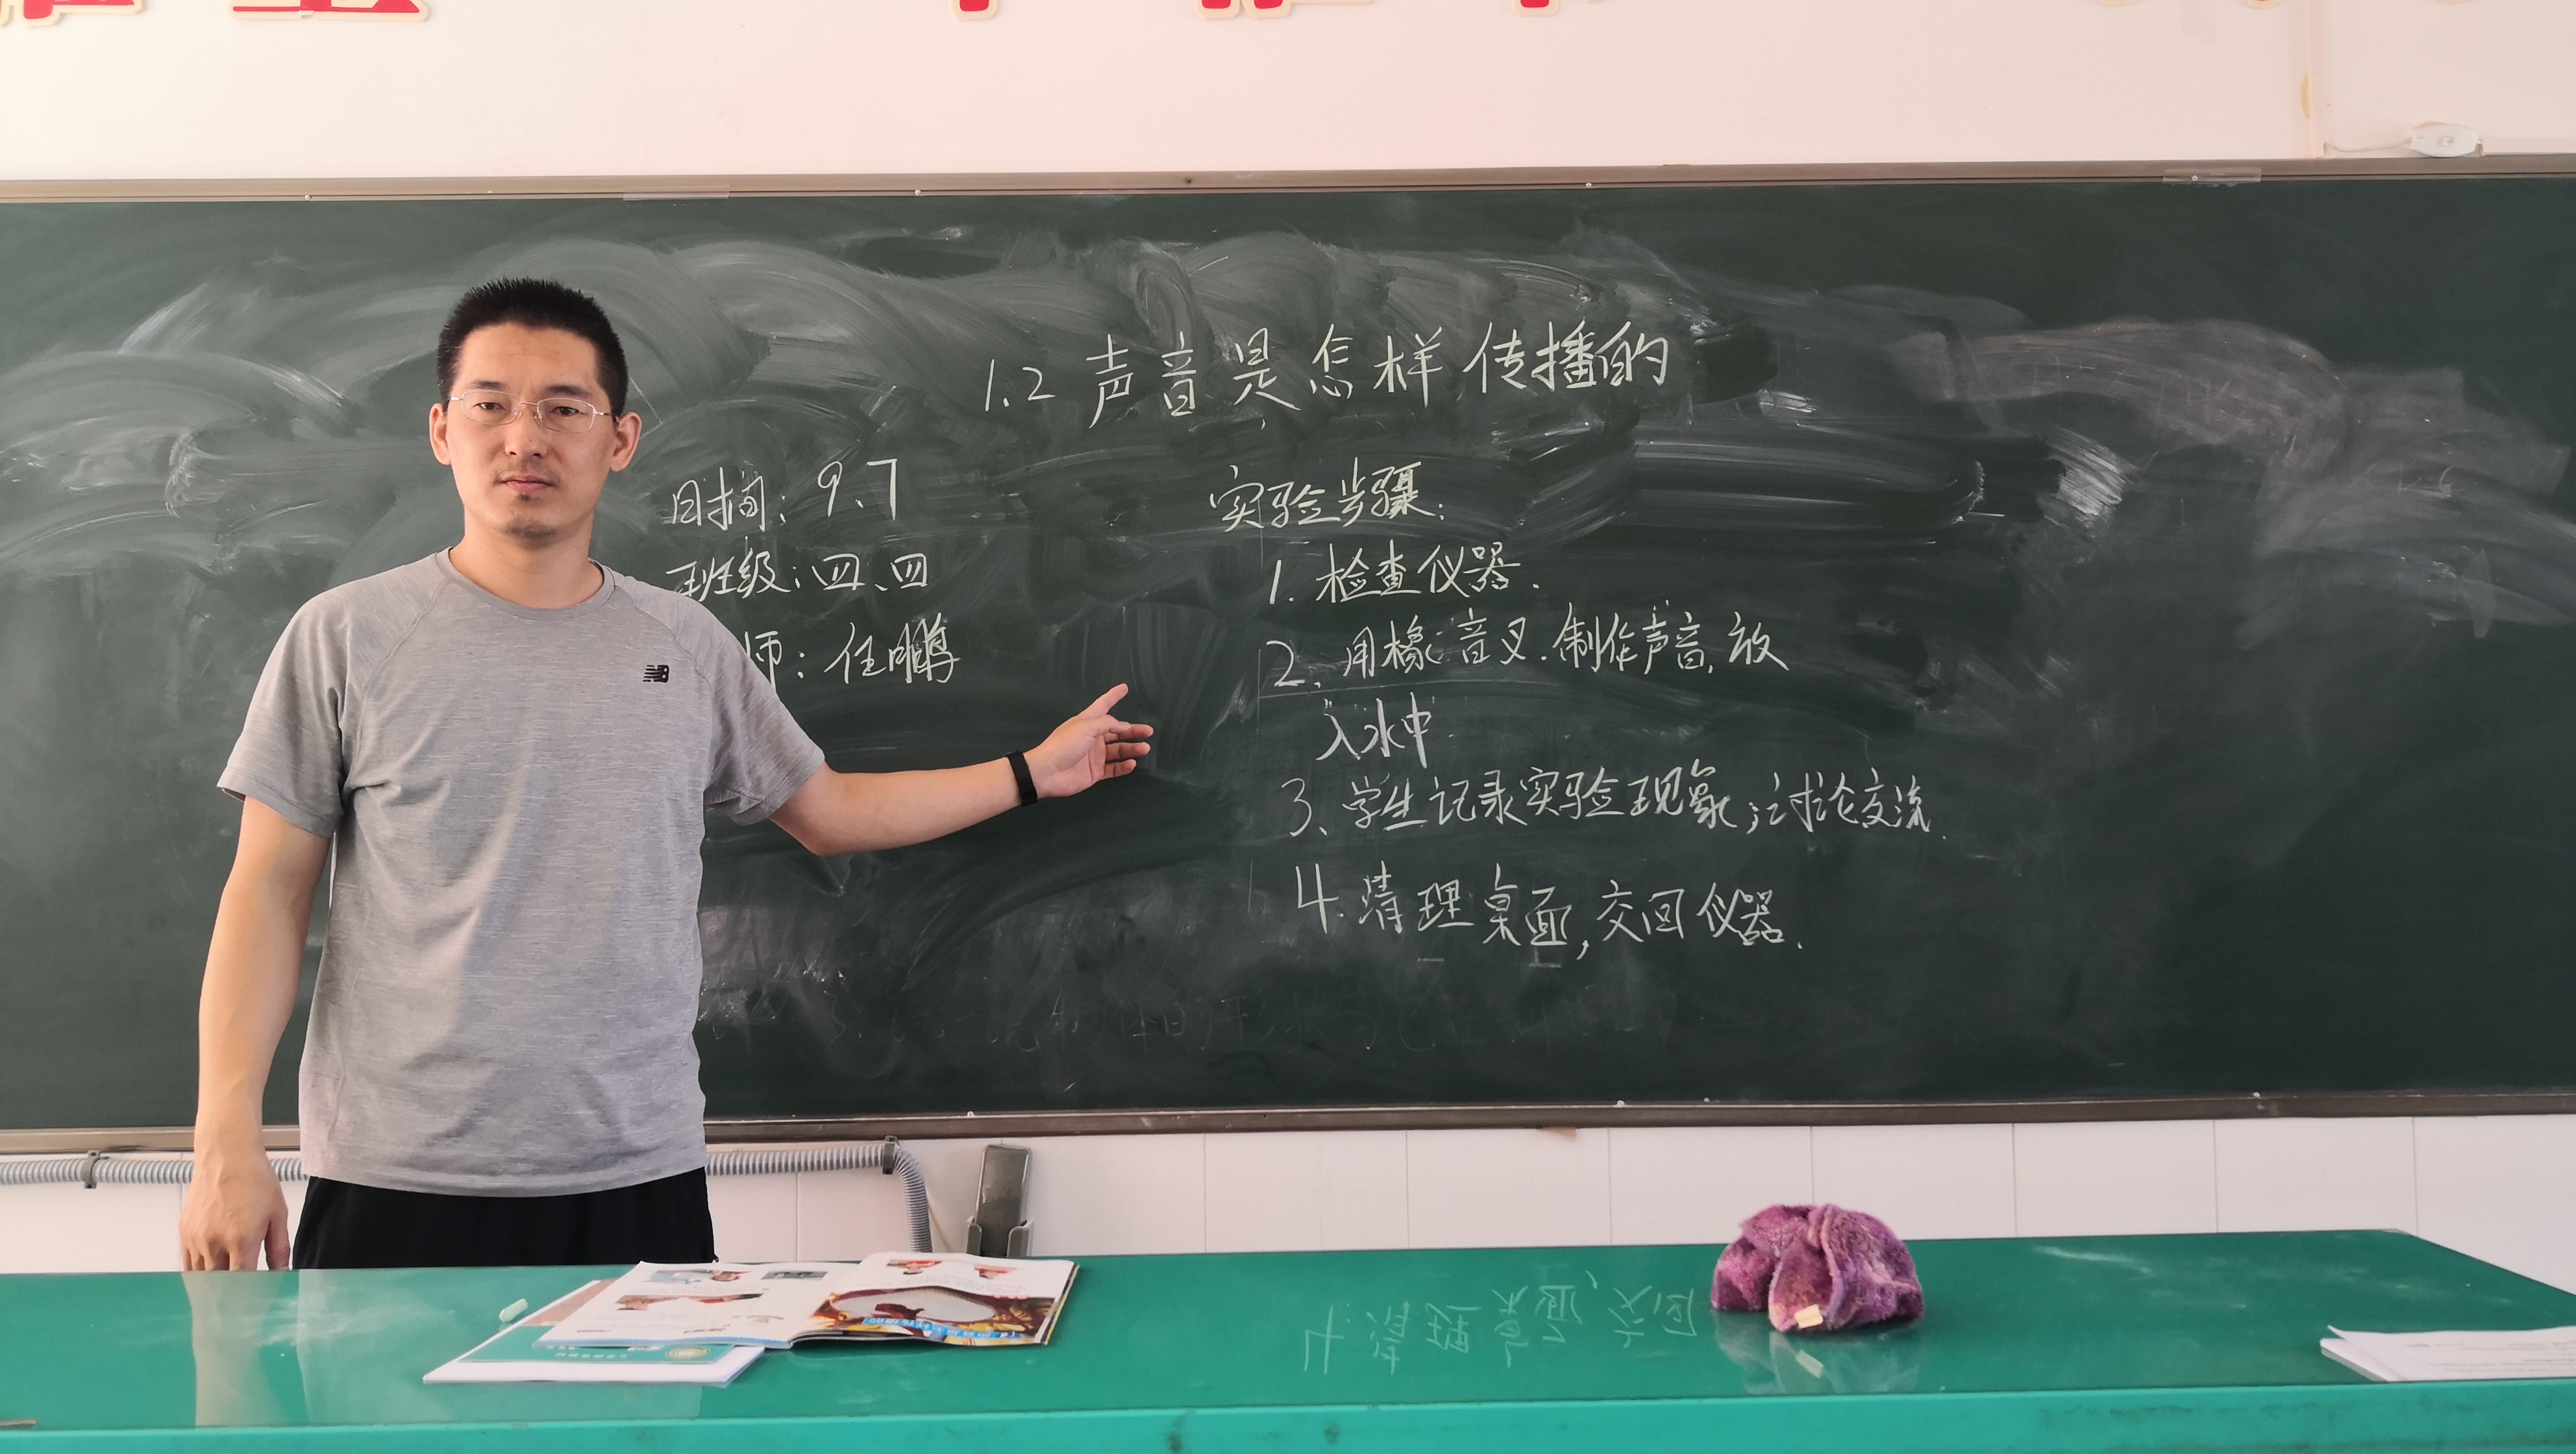 1.2 声音是怎样传播的
日期: 9.7
班级: 四、四
师: 任鹏
实验步骤:
1. 检查仪器.
2. 用橡 音叉.制作声音,放
入水中
3、学生记录实验现象,讨论交流.
4.清理桌面,交回仪器.